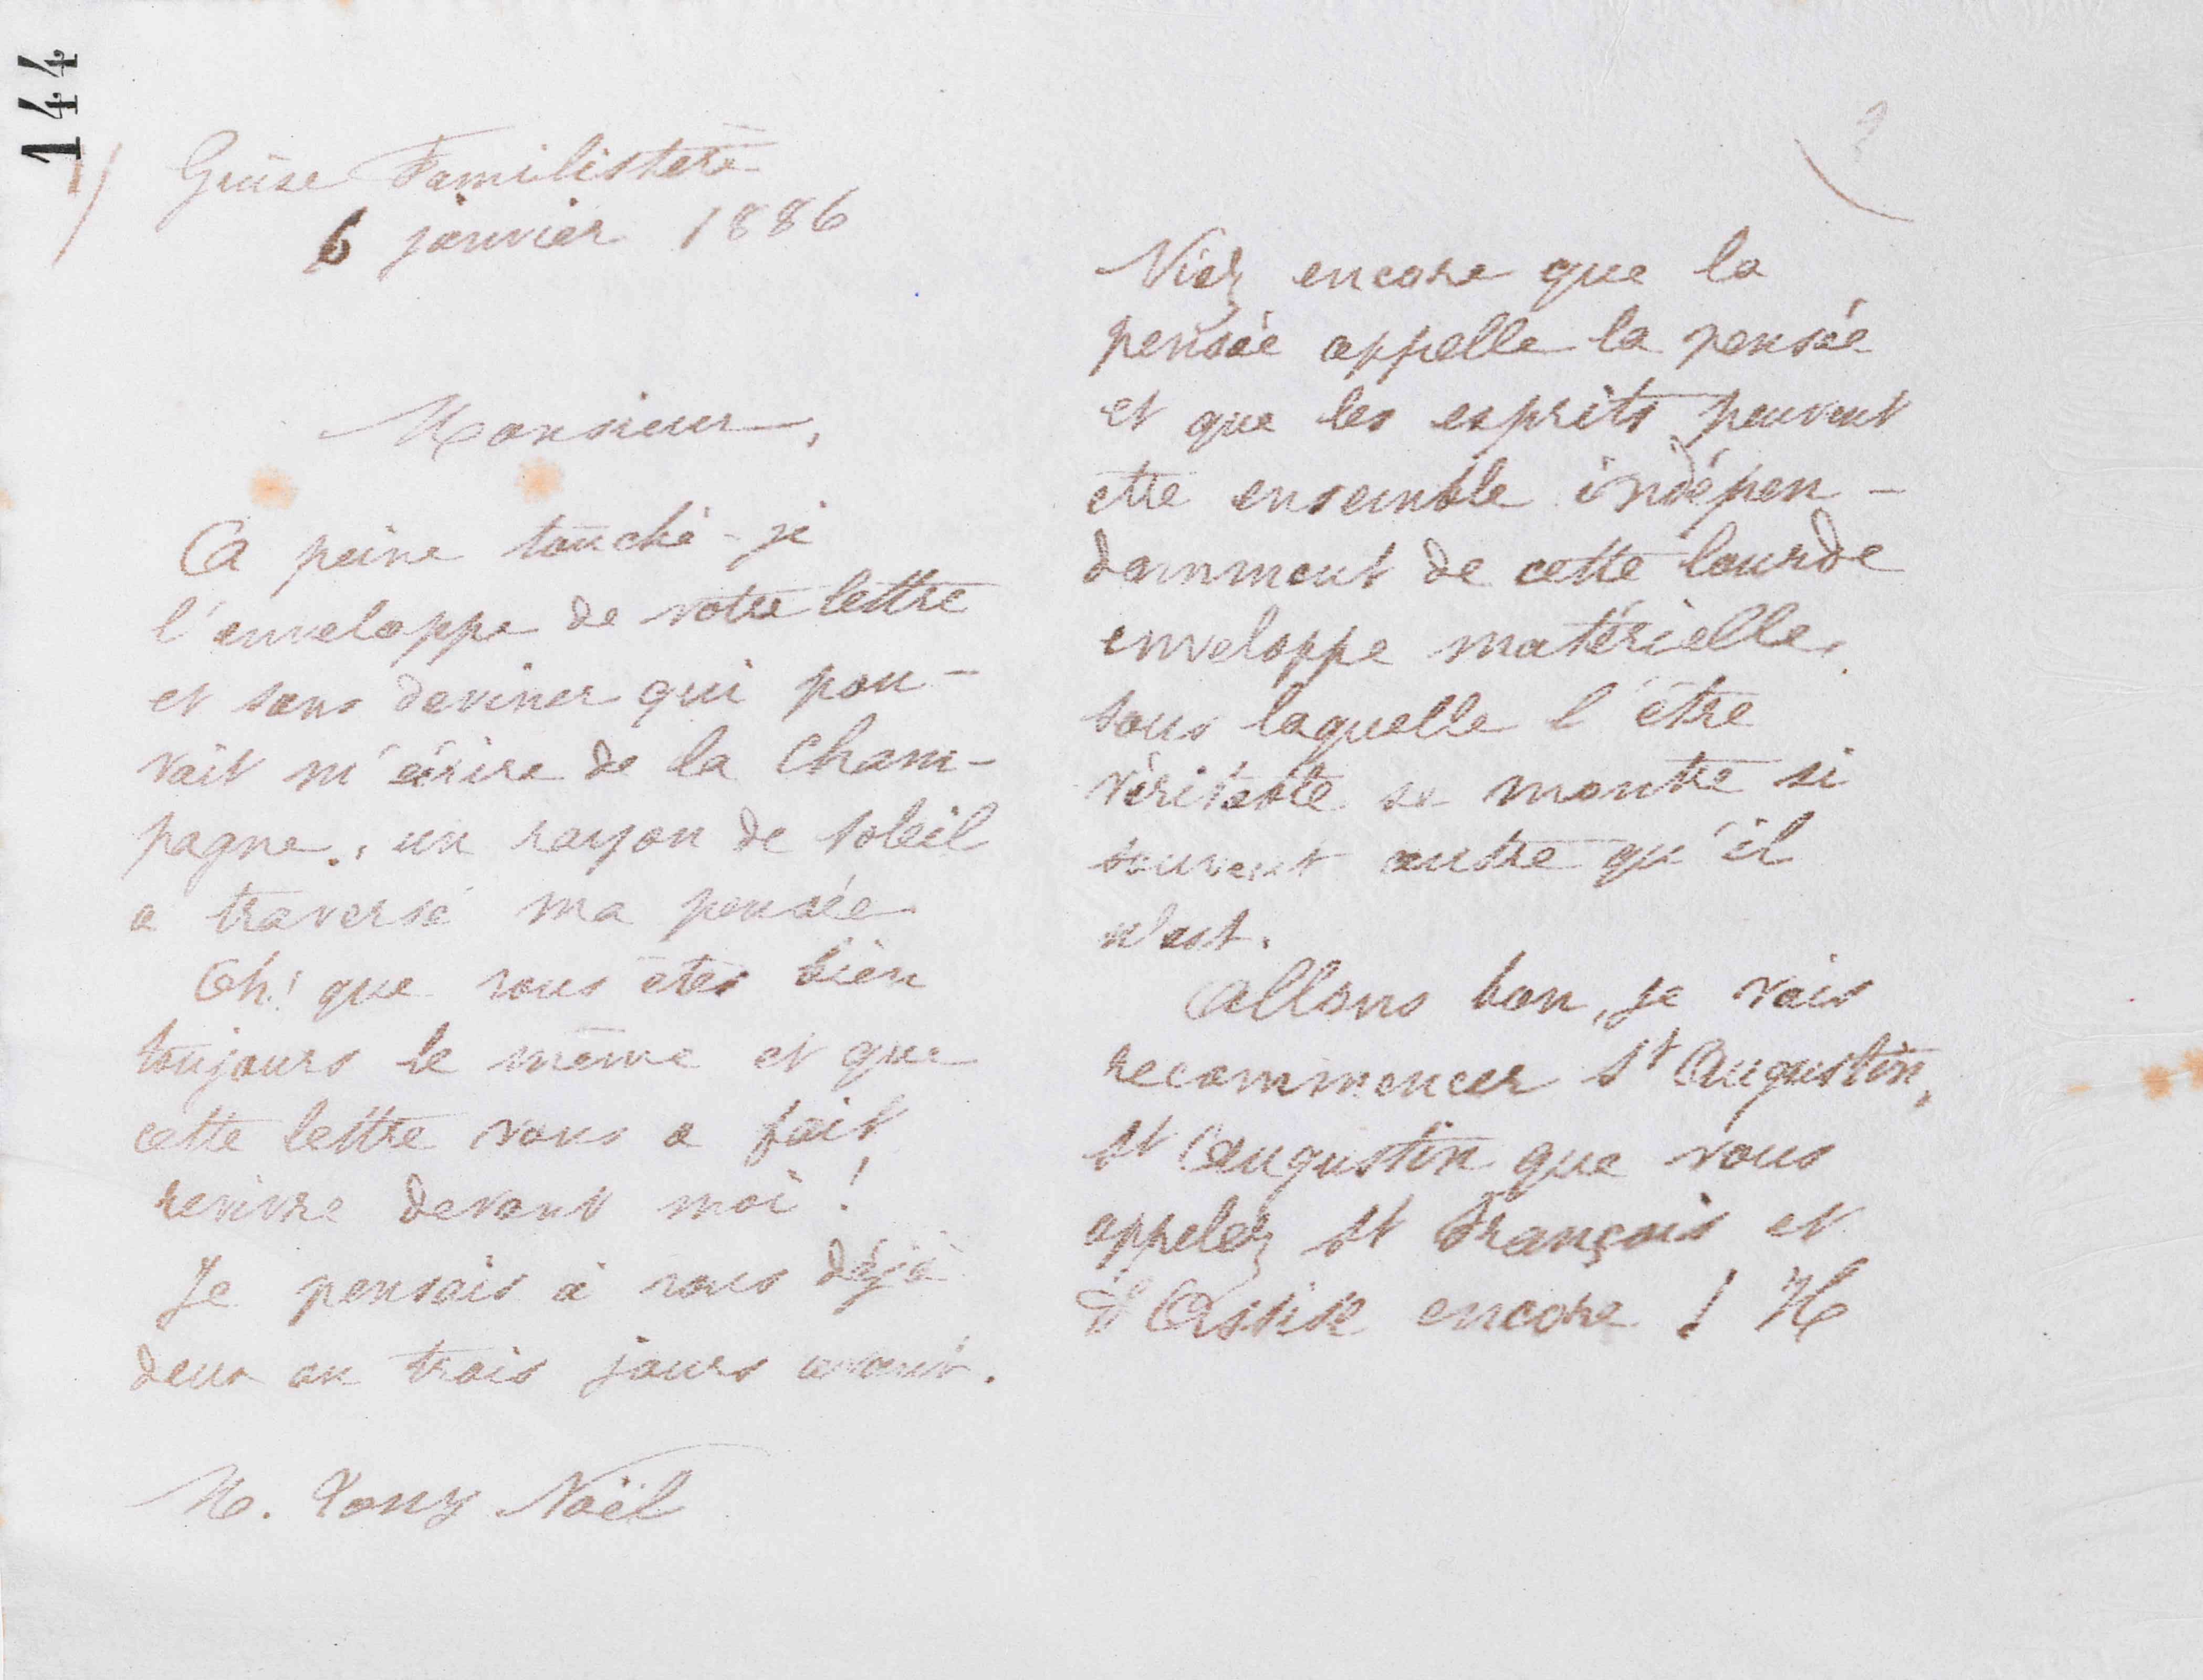 144
Guise Familistère
6 janvier 1886
Monsieur,
A peine touché-je
l'enveloppe de votre lettre
et sans deviner qui pou-
vait m'écrire de la Cham-
pagne, un rayon de soleil
a traversé ma pensée
Oh! que vous êtes bien
toujours le même et que
cette lettre vous a fait
revivre devant moi !
Je pensais à vous déjà
deux ou trois jours avant.
M. Tony Noël
2
Niez encore que la
pensée appelle la pensée
et que les esprits peuvent
etre ensemble indépen-
damment de cette lourde
enveloppe matérielle,
sous laquelle l'être
véritable se montre si
souvent autre qu'il
n'est.
Allons bon, je vais
recommencer St Augustin,
St Augustin que vous
appelez St François et
d'Assise encore !